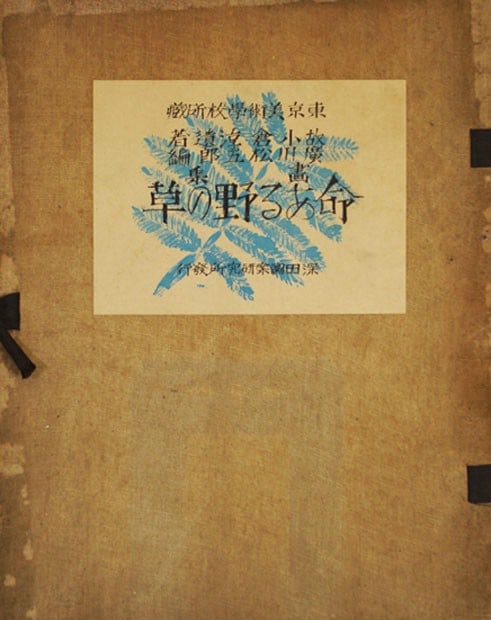 東京美術學校所藏
故小倉遺著
廣川松五郎編
畫集
命ある野の草
深田圖案研究所發行